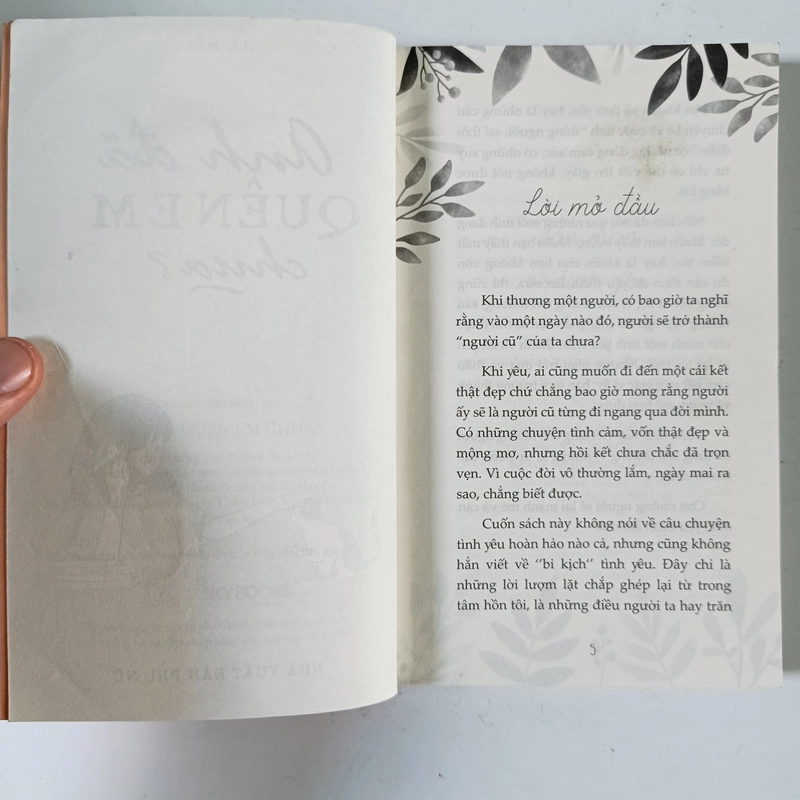 Anh đã
QUÊN EM
chưa?
Lời mở đầu
Khi thương một người, có bao giờ ta nghĩ
rằng vào một ngày nào đó, người sẽ trở thành
“người cũ” của ta chưa?
Khi yêu, ai cũng muốn đi đến một cái kết
thật đẹp chứ chẳng bao giờ mong rằng người
ấy sẽ là người cũ từng đi ngang qua đời mình.
Có những chuyện tình cảm, vốn thật đẹp và
mộng mơ, nhưng hồi kết chưa chắc đã trọn
vẹn. Vì cuộc đời vô thường lắm, ngày mai ra
sao, chẳng biết được.
Cuốn sách này không nói về câu chuyện
tình yêu hoàn hảo nào cả, nhưng cũng không
hẳn viết về “bi kịch“ tình yêu. Đây chỉ là
những lời lượm lặt chắp ghép lại từ trong
tâm hồn tôi, là những điều người ta hay trăn
5